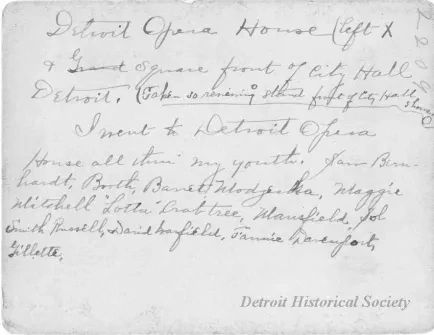 Detroit Opera House (left X
& Grand Square front of City Hall
Detroit. (Taken so reviewing stand front of City Hall shows)
I went to Detroit Opera
House all thru my youth. Saw Bern-
hardt, Booth, Barret, Modjeska, Maggie
Mitchell "Lotta" Crabtree, Mansfield, Sol
Smith Russell, David Warfield, Fannie Davenport,
Gillette.
Detroit Historical Society